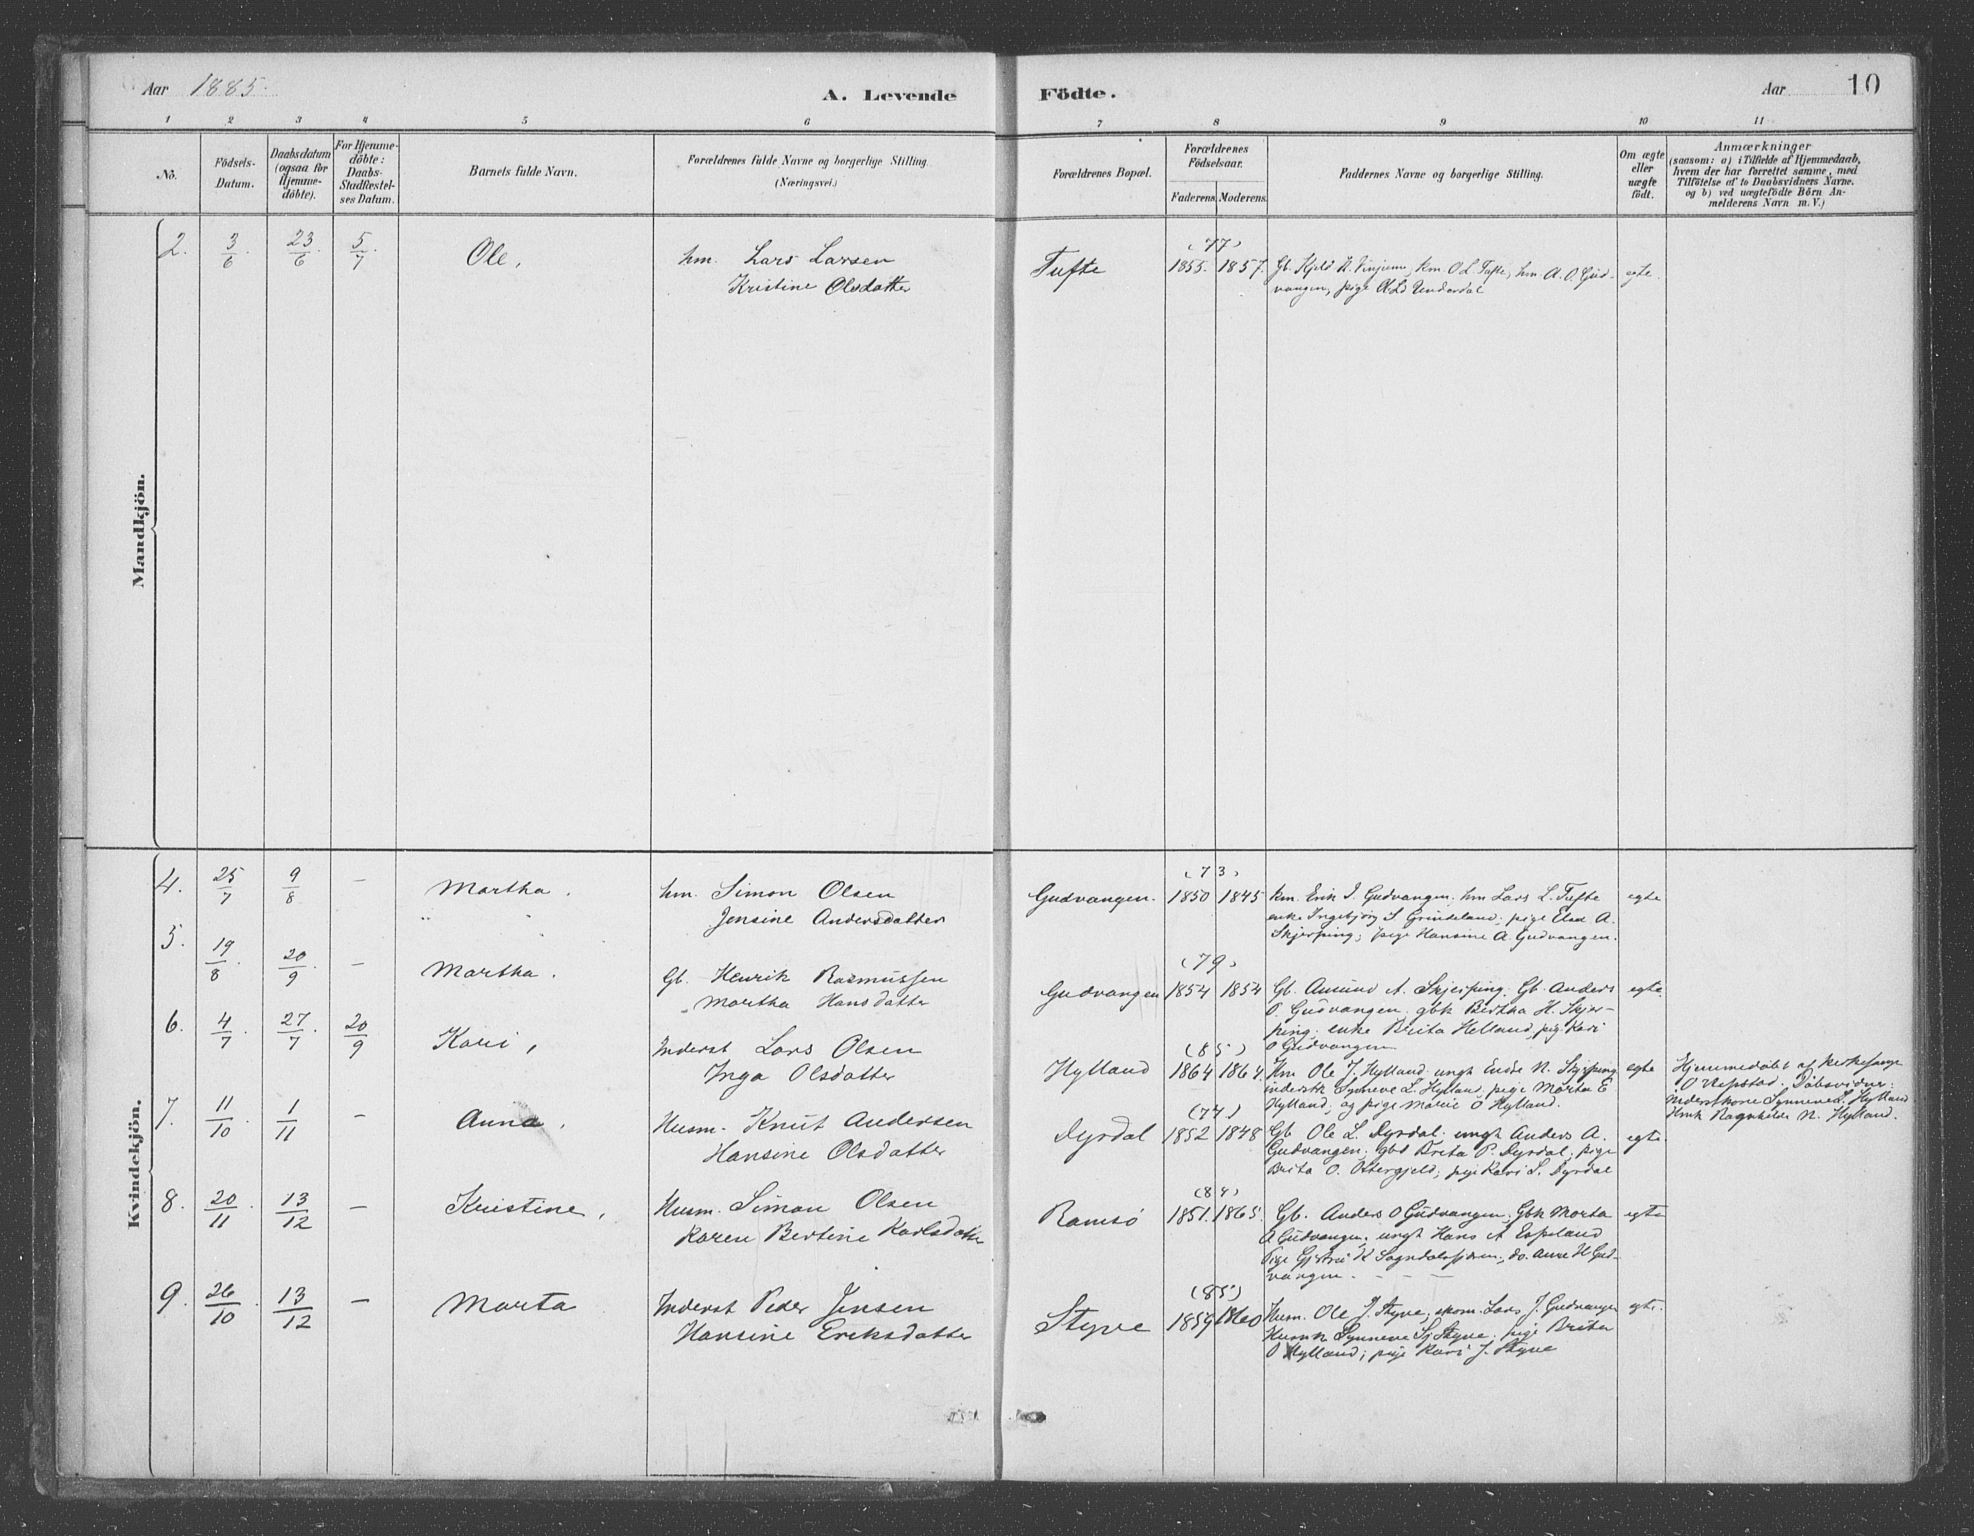 Aar 1885.
A. Levende Födte.
Aar 10
1 2 3 4 5 6 7 8 9 10 11
No.
Födsels-Datum.
Daabsdatum (ogsaa for Hjemme-döbte).
For Hjemme-döbte: Daabs-Stadfæstel-ses Datum.
Barnets fulde Navn.
Forældrenes fulde Navne og borgerlige Stilling.
(Næringsvei.)
Forældrenes Bopæl.
Forældrenes Födselsaar.
Faderens Moderens.
Faddernes Navne og borgerlige Stilling.
Om ægte eller uægte födt.
Anmærkninger
(saasom: a) i Tilfælde af Hjemmedaab,
hvem der har forrettet samme, med
Tilföielse af to Daabsvidners Navne.
og b) ved uægtefödte Börn An-
melderens Navn m. V.)
Mandkjön.
2. 3/6 23/6 5/7 Ole, hm. Lars Larsen
Kristine Olsdatter
Tufte (77) 1855. 1857. Gb. Kjeld N. Vinjum, km. O L. Tufte, hm. A. O. Gud-
vangen, pige Underdal
egte.
Kvindekjön.
4. 25/7 9/8 — Martha. hm. Simon Olsen
Jensine Andersdatter
Gudvangen. (73) 1850 1845 km. Erik I. Gudvangen, hm Lars L. Tufte
enke Ingebjörg S Grindeland, pige Elsa A.
Skjerping, pige Hansine A. Gudvangen.
egte
5. 19/8 20/9 — Martha. Gb. Henrik Rasmussen
Martha Hansdatter
Gudvangen (79) 1854 1854 Gb. Amund A. Skjerping. Gb. Anders
O. Gudvangen. gbk Bertha H. Skjer-
ping. enke Brita Helland, pig. Kari
O Gudvangen
egte.
6. 4/7 27/7 20/9 Kari, Inderst Lars Olsen
Inga Olsdatter
Hylland (85) 1864 1864. Km Ole J. Hylland, ungk Endre N. Skjerping
inderstk Synneve L Hylland, pige Marta E
Hylland, og pige Marie O Hylland.
egte
Hjemmedöbt af kirkesanger
O Repstad. Döbsvidner:
inderstkone Synneve L. Hylland
Hmk Ragnhilde N. Hylland.
7. 11/10 1/11 — Anna, Husm. Knut Andersen
Hansine Olsdatter
Dyrdal (74) 1852 1848 Gb Ole L. Dyrdal. ungk Anders A.
Gudvangen. Brita P. Dyrdal, pige
Brita O. pige Kari L. Dyrdal
egte
8. 20/11 13/12 — Kristine, Husm. Simon Olsen
Karen Bertine Karlsdatter
Ramsö (84) 1851. 1865. Gb. Anders O Gudvangen, Gbk Marta
A Gudvangen. ungk Hans A Espeland
Pige K Sogndalsfjæren, do. Anne H Gud-
vangen.
egte
9. 26/10 13/12 — Marta Inderst Peder Jensen
Hansine Eriksdatter
Styve (85) 1859 1860 Husm. Ole J. Styve, Lars J. Gudvangen
Husmk Synneve Sj Styve. pige Brita
O Hylland; pige Kari J. Styve
egte.